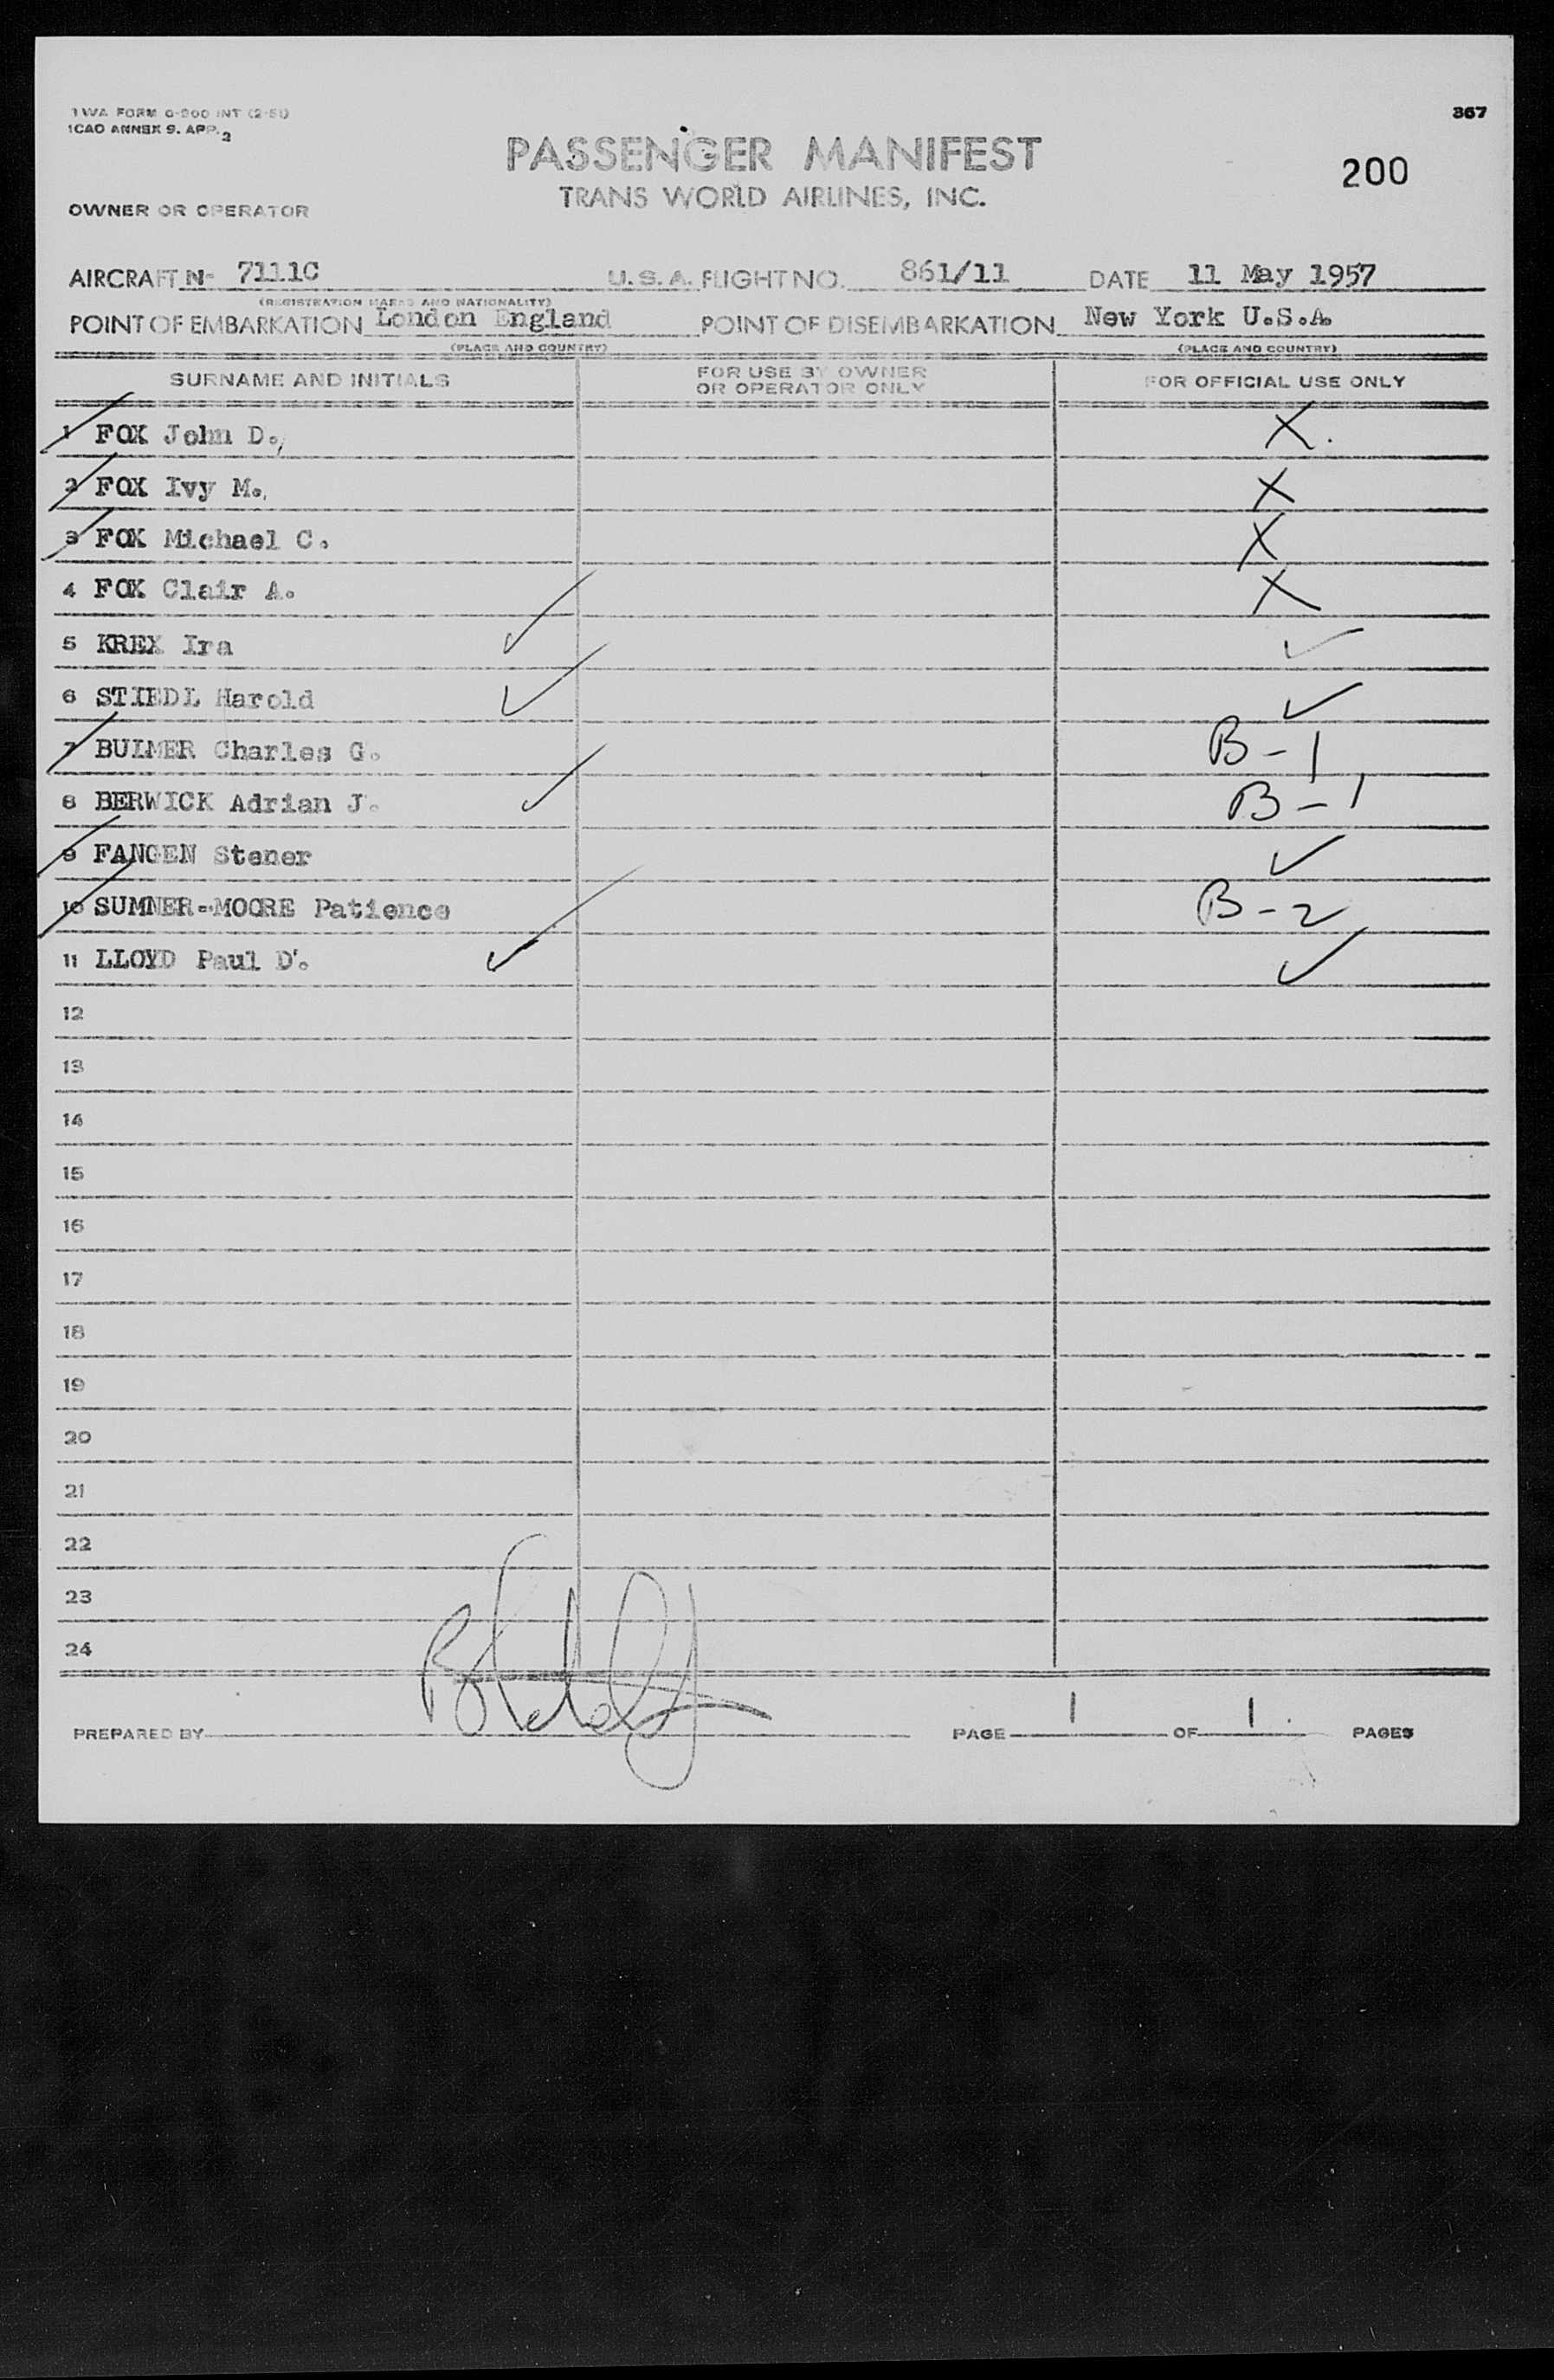 TWA FORM O-900 INT (2-51)
ICAO ANNEX 9. APP. 2
367
PASSENGER MANIFEST
200
TRANS WORLD AIRLINES, INC.
OWNER OR OPERATOR
AIRCRAFT N- 7111C U.S.A. FLIGHT NO. 861/11 DATE 11 May 1957
(REGISTRATION MARKS AND NATIONALITY)
POINT OF EMBARKATION London England POINT OF DISEMBARKATION New York U.S.A.
(PLACE AND COUNTRY) (PLACE AND COUNTRY)
SURNAME AND INITIALS FOR USE BY OWNER OR OPERATOR ONLY FOR OFFICIAL USE ONLY
1 FOX John D., X.
2 FOX Ivy M., X
3 FOX Michael C. X
4 FOX Clair A. X
5 KREX Ira ✓ ✓
6 STIEDL Harold ✓ ✓
7 BULMER Charles G. B-1
8 BERWICK Adrian J. ✓ B-1
9 FANGEN Stener ✓
10 SUMNER-MOORE Patience B-2
11 LLOYD Paul D. ✓ ✓
12
13
14
15
16
17
18
19
20
21
22
23
24
PREPARED BY PAGE 1 OF 1. PAGES